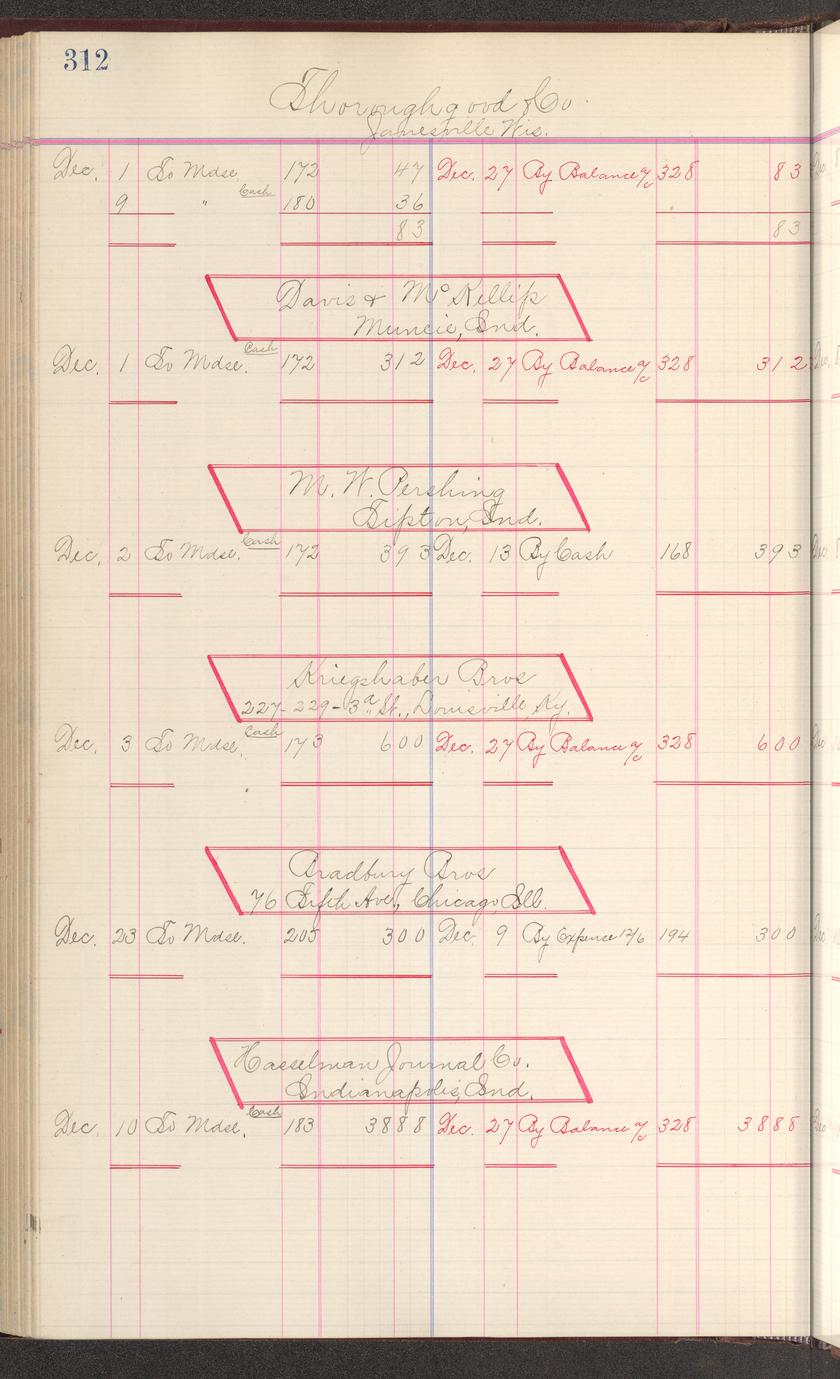 312
Thoroughgood & Co.
Janesville Wis.
Dec. 1 To Mdse. 172 47 Dec. 27 By Balance a/c 328 83
9 " Cash 180 36
83 83
Davis & McKellip
Muncie, Ind.
Dec. 1 To Mdse. Cash 172 312 Dec. 27 By Balance a/c 328 312
M. W. Pershing
Tipton, Ind.
Dec. 2 To Mdse. Cash 172 393 Dec. 13 By Cash 168 393
Kriegshaber Bros
227-229-3d St., Louisville, Ky.
Dec. 3 To Mdse. Cash 173 600 Dec. 27 By Balance a/c 328 600
Bradbury Bros
76 Fifth Ave, Chicago, Ill.
Dec. 23 To Mdse. 205 300 Dec. 9 By Expense 12/6 194 300
Hasselman Journal Co.
Indianapolis, Ind.
Dec. 10 To Mdse. Cash 183 3888 Dec. 27 By Balance a/c 328 3888